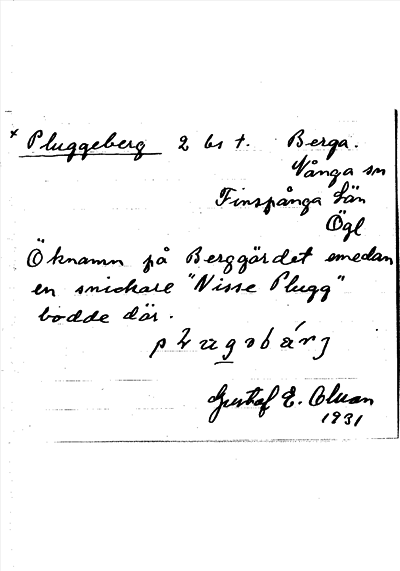 * Pluggeberg 2 bs t. Berga.
Vånga sn
Finspånga län
Ögl
Öknamn på Berggärdet emedan
en snickare "Nisse Plugg"
bodde där.
Gustaf E.
1931